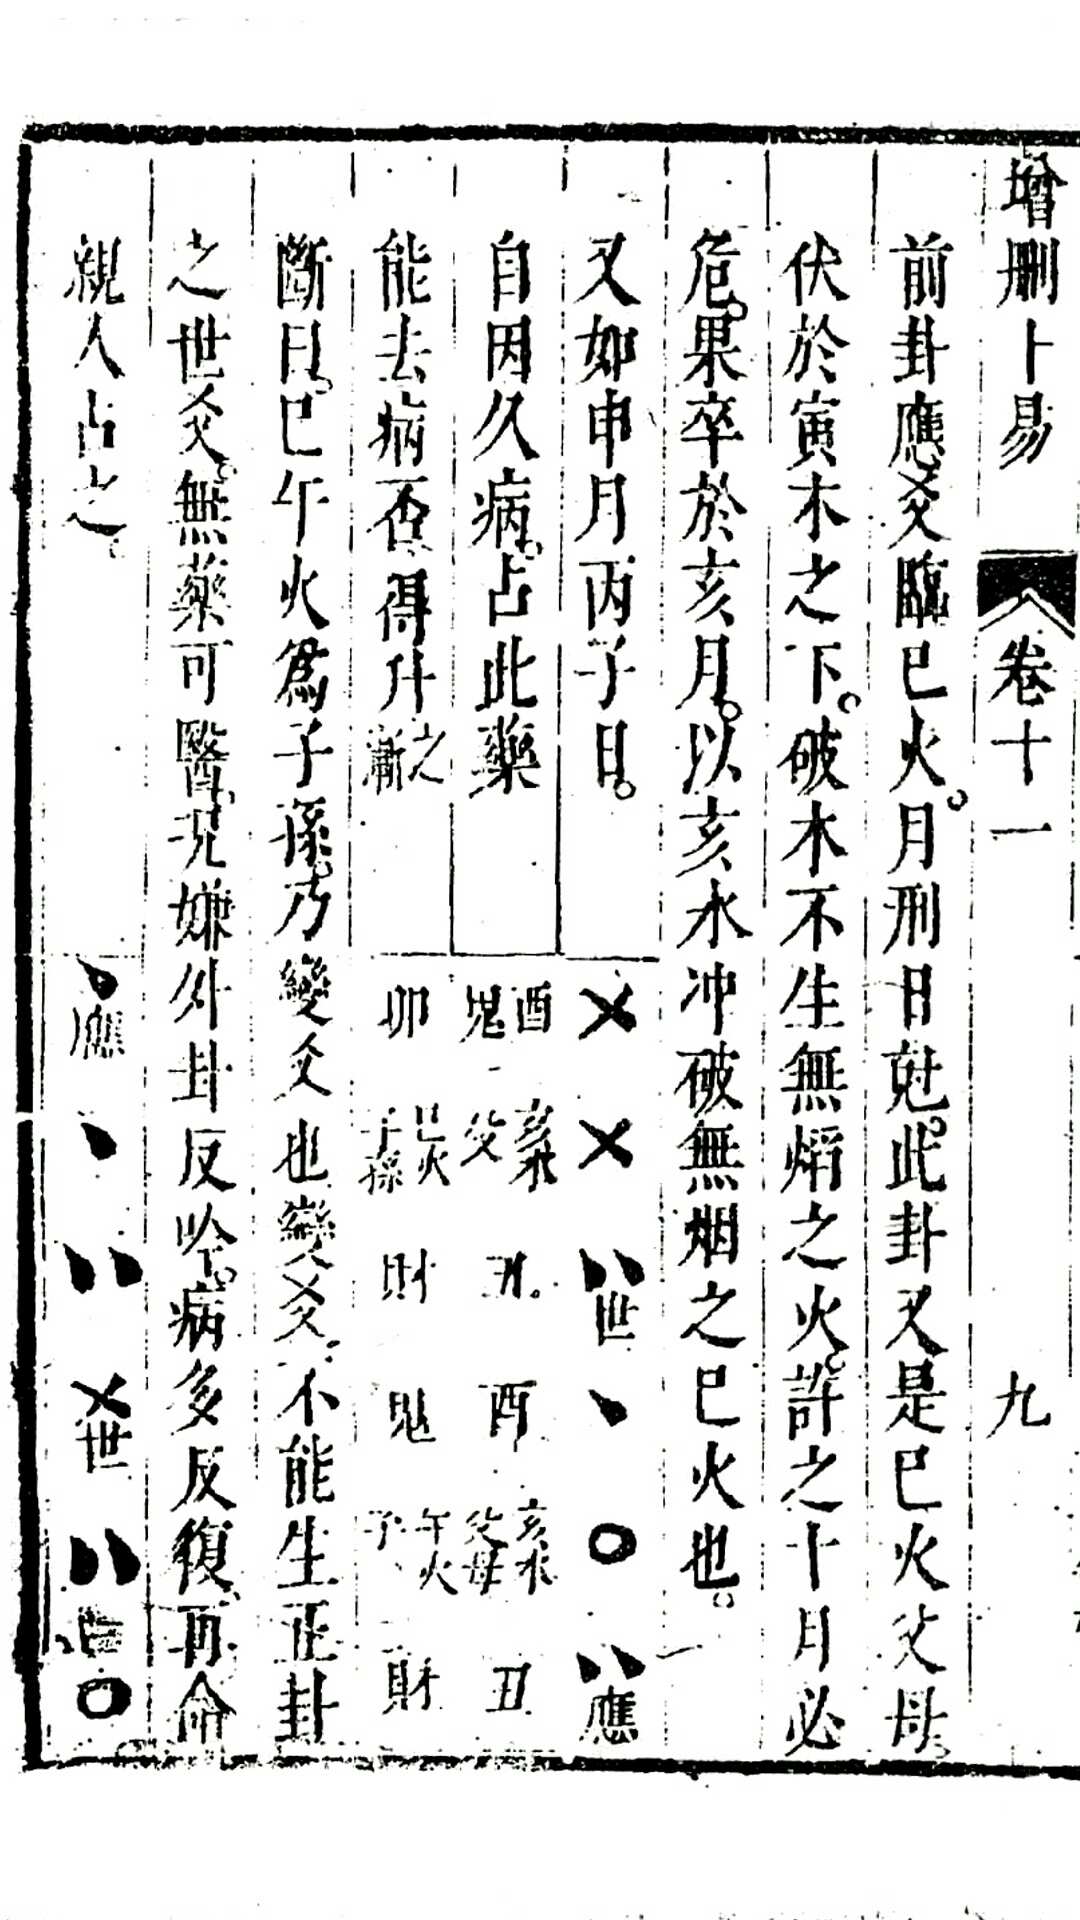 增刪卜易 卷十一 九
前卦應爻臨巳火。月刑日尅。此卦又是巳火父母。
伏於寅木之下。破木不生無熖之火。許之十月必
危。果卒於亥月。以亥水冲破無烟之巳火也。
又如申月丙子日。
自因久病。占此藥
能去病否。得升之漸
㐅 㐅 世 應
酉 亥水 丑 酉 亥水 丑
鬼 父 父母
卯 巳火 財 鬼 午火 財
子孫 子
斷曰。巳午火爲子孫。乃變爻也。變爻。不能生正卦
之世爻。無藥可醫。況嫌外卦反吟。病多反復。再命
親人占之。
應 世